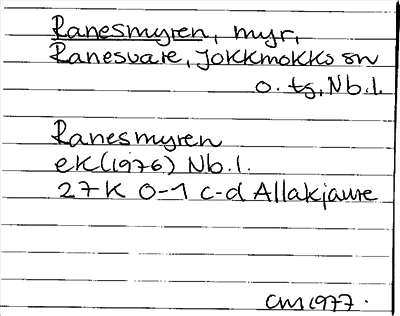 Ranesmyren, myr,
Ranesvare, Jokkmokks sn
o. tg, Nb.l.
Ranesmyren
ek(1976) Nb.l.
27K 0-1 c-d Allakjaure
CM 1977.